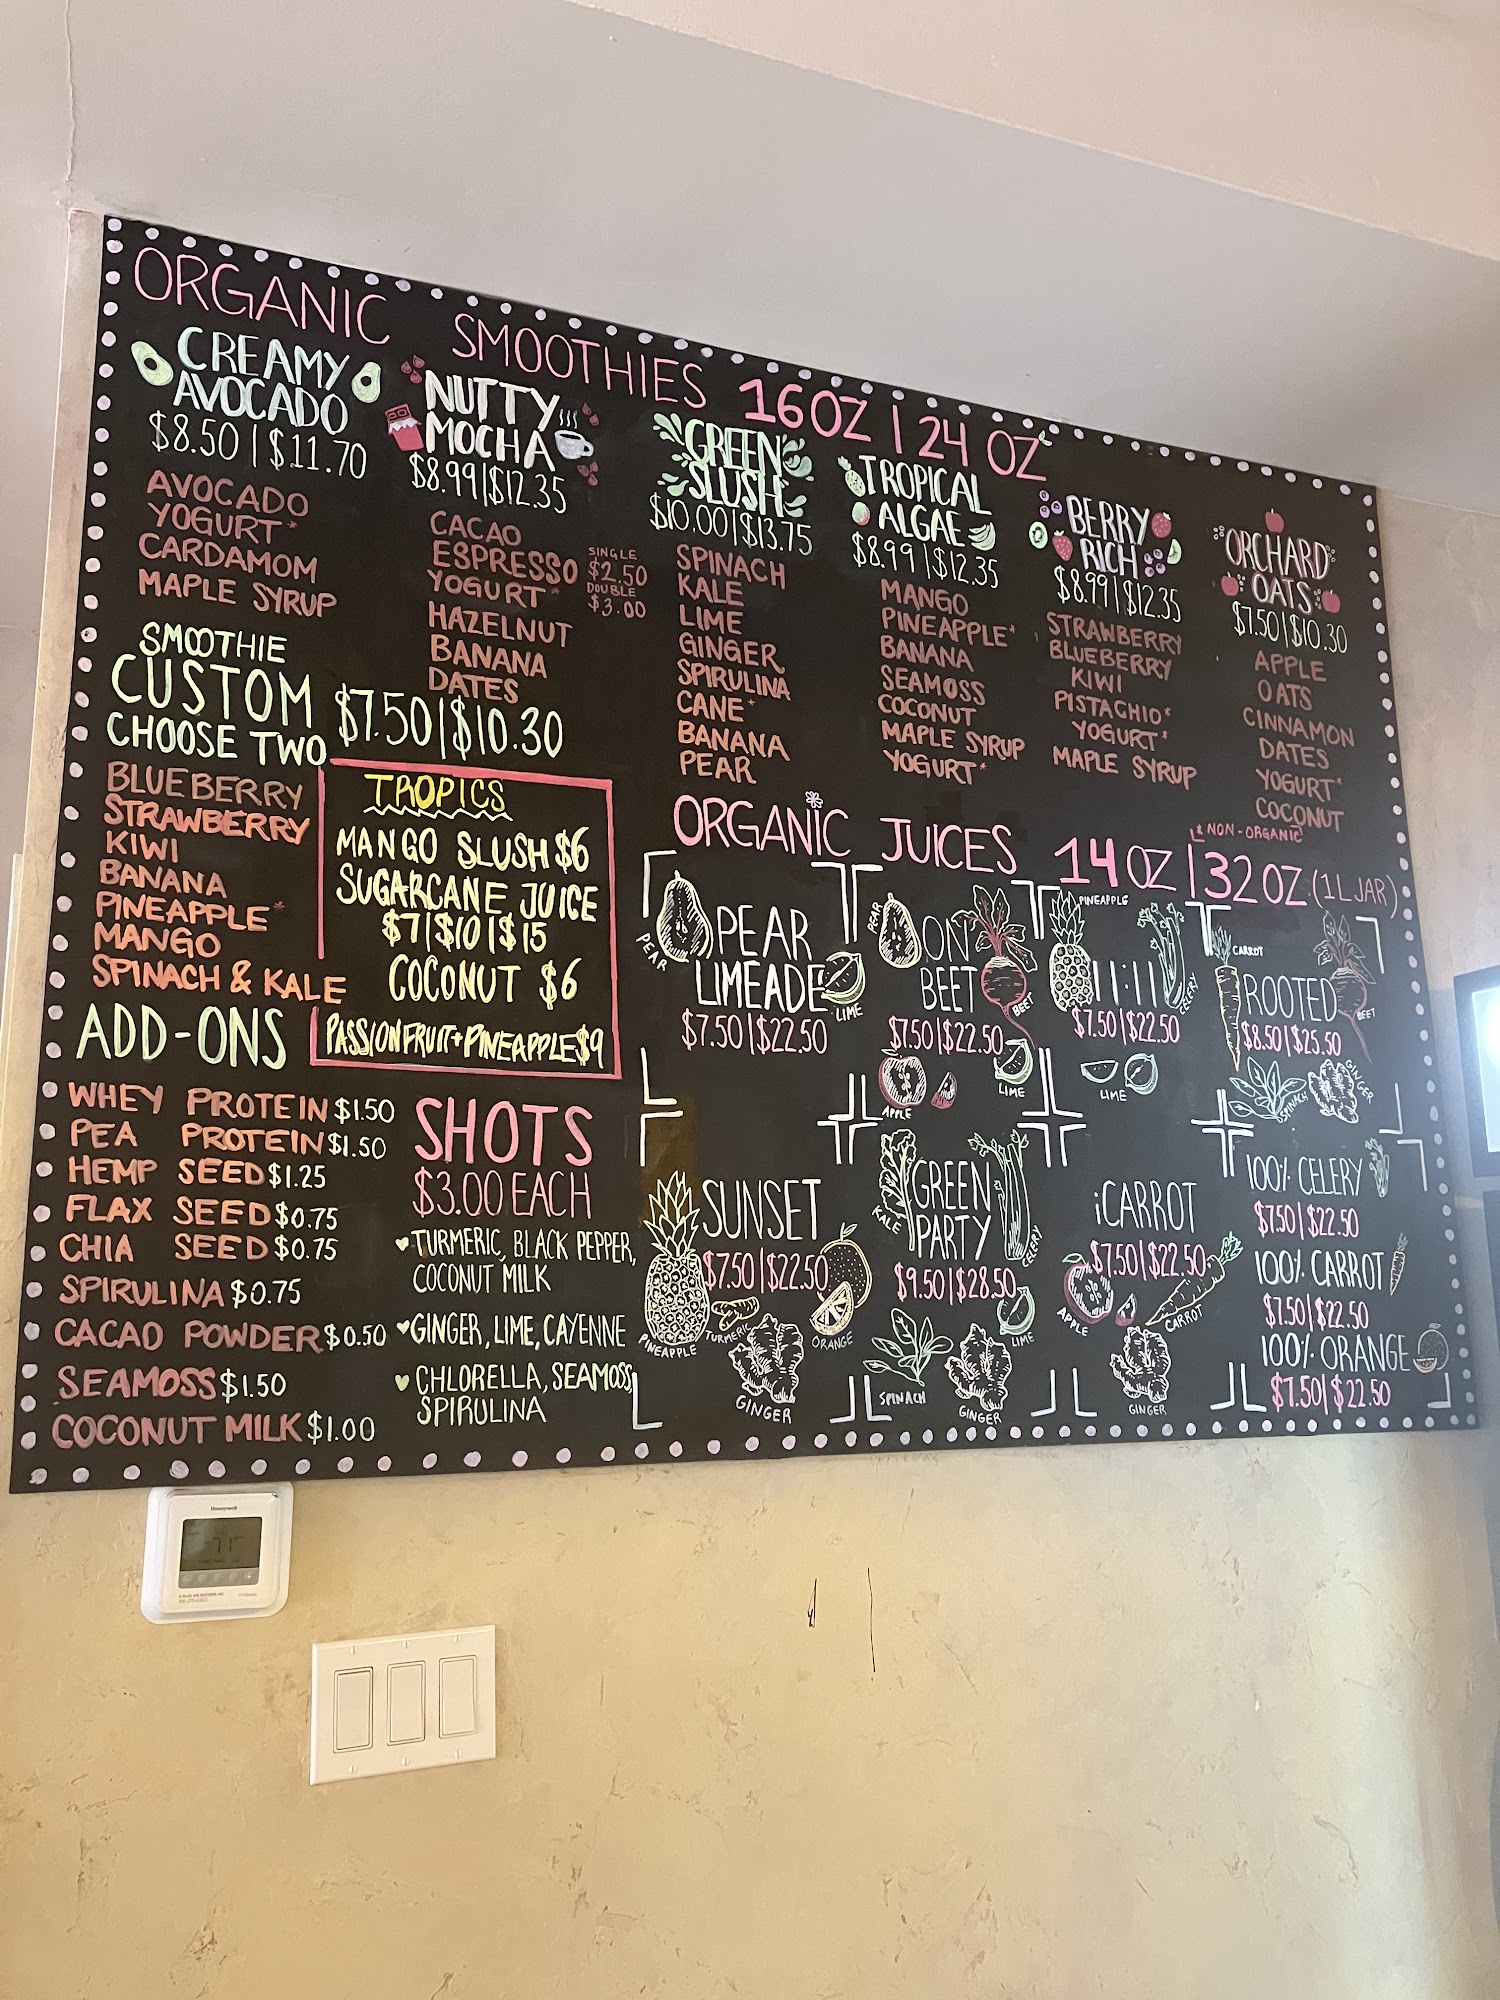 ORGANIC SMOOTHIES 16 OZ | 24 OZ
CREAMY
AVOCADO
$8.50 | $11.70
AVOCADO
YOGURT*
CARDAMOM
MAPLE SYRUP
NUTTY
MOCHA
$8.99 | $12.35
CACAO
ESPRESSO
YOGURT*
HAZELNUT
BANANA
DATES
SINGLE
$2.50
DOUBLE
$3.00
GREEN
SLUSH
$10.00 | $13.75
SPINACH
KALE
LIME
GINGER
SPIRULINA
CANE*
BANANA
PEAR
TROPICAL
ALGAE
$8.99 | $12.35
MANGO
PINEAPPLE*
BANANA
SEAMOSS
COCONUT
MAPLE SYRUP
YOGURT*
BERRY
RICH
$8.99 | $12.35
STRAWBERRY
BLUEBERRY
KIWI
PISTAGHIO*
YOGURT*
MAPLE SYRUP
ORCHARD
OATS
$7.50 | $10.30
APPLE
OATS
CINNAMON
DATES
YOGURT*
COCONUT
* NON-ORGANIC
SMOOTHIE
CUSTOM $7.50 | $10.30
CHOOSE TWO
BLUEBERRY
STRAWBERRY
KIWI
BANANA
PINEAPPLE*
MANGO
SPINACH & KALE
TROPICS
MANGO SLUSH $6
SUGARCANE JUICE
$7 | $10 | $15
COCONUT $6
PASSIONFRUIT + PINEAPPLE $9
ADD-ONS
WHEY PROTEIN $1.50
PEA PROTEIN $1.50
HEMP SEED $1.25
FLAX SEED $0.75
CHIA SEED $0.75
SPIRULINA $0.75
CACAO POWDER $0.50
SEAMOSS $1.50
COCONUT MILK $1.00
SHOTS
$3.00 EACH
♥ TURMERIC, BLACK PEPPER,
COCONUT MILK
♥ GINGER, LIME, CAYENNE
♥ CHLORELLA, SEAMOSS,
SPIRULINA
ORGANIC JUICES 14 OZ | 32 OZ (1 L JAR)
PEAR
LIMEADE
$7.50 | $22.50
PEAR
LIME
ON
BEET
$7.50 | $22.50
PEAR
BEET
APPLE
LIME
11:11
$7.50 | $22.50
PINEAPPLE
CELERY
LIME
ROOTED
$8.50 | $25.50
CARROT
BEET
SPINACH
GINGER
SUNSET
$7.50 | $22.50
PINEAPPLE
TURMERIC
ORANGE
GINGER
GREEN
PARTY
$9.50 | $28.50
KALE
CELERY
LIME
SPINACH
GINGER
iCARROT
$7.50 | $22.50
APPLE
CARROT
GINGER
100% CELERY
$7.50 | $22.50
100% CARROT
$7.50 | $22.50
100% ORANGE
$7.50 | $22.50
Honeywell
71